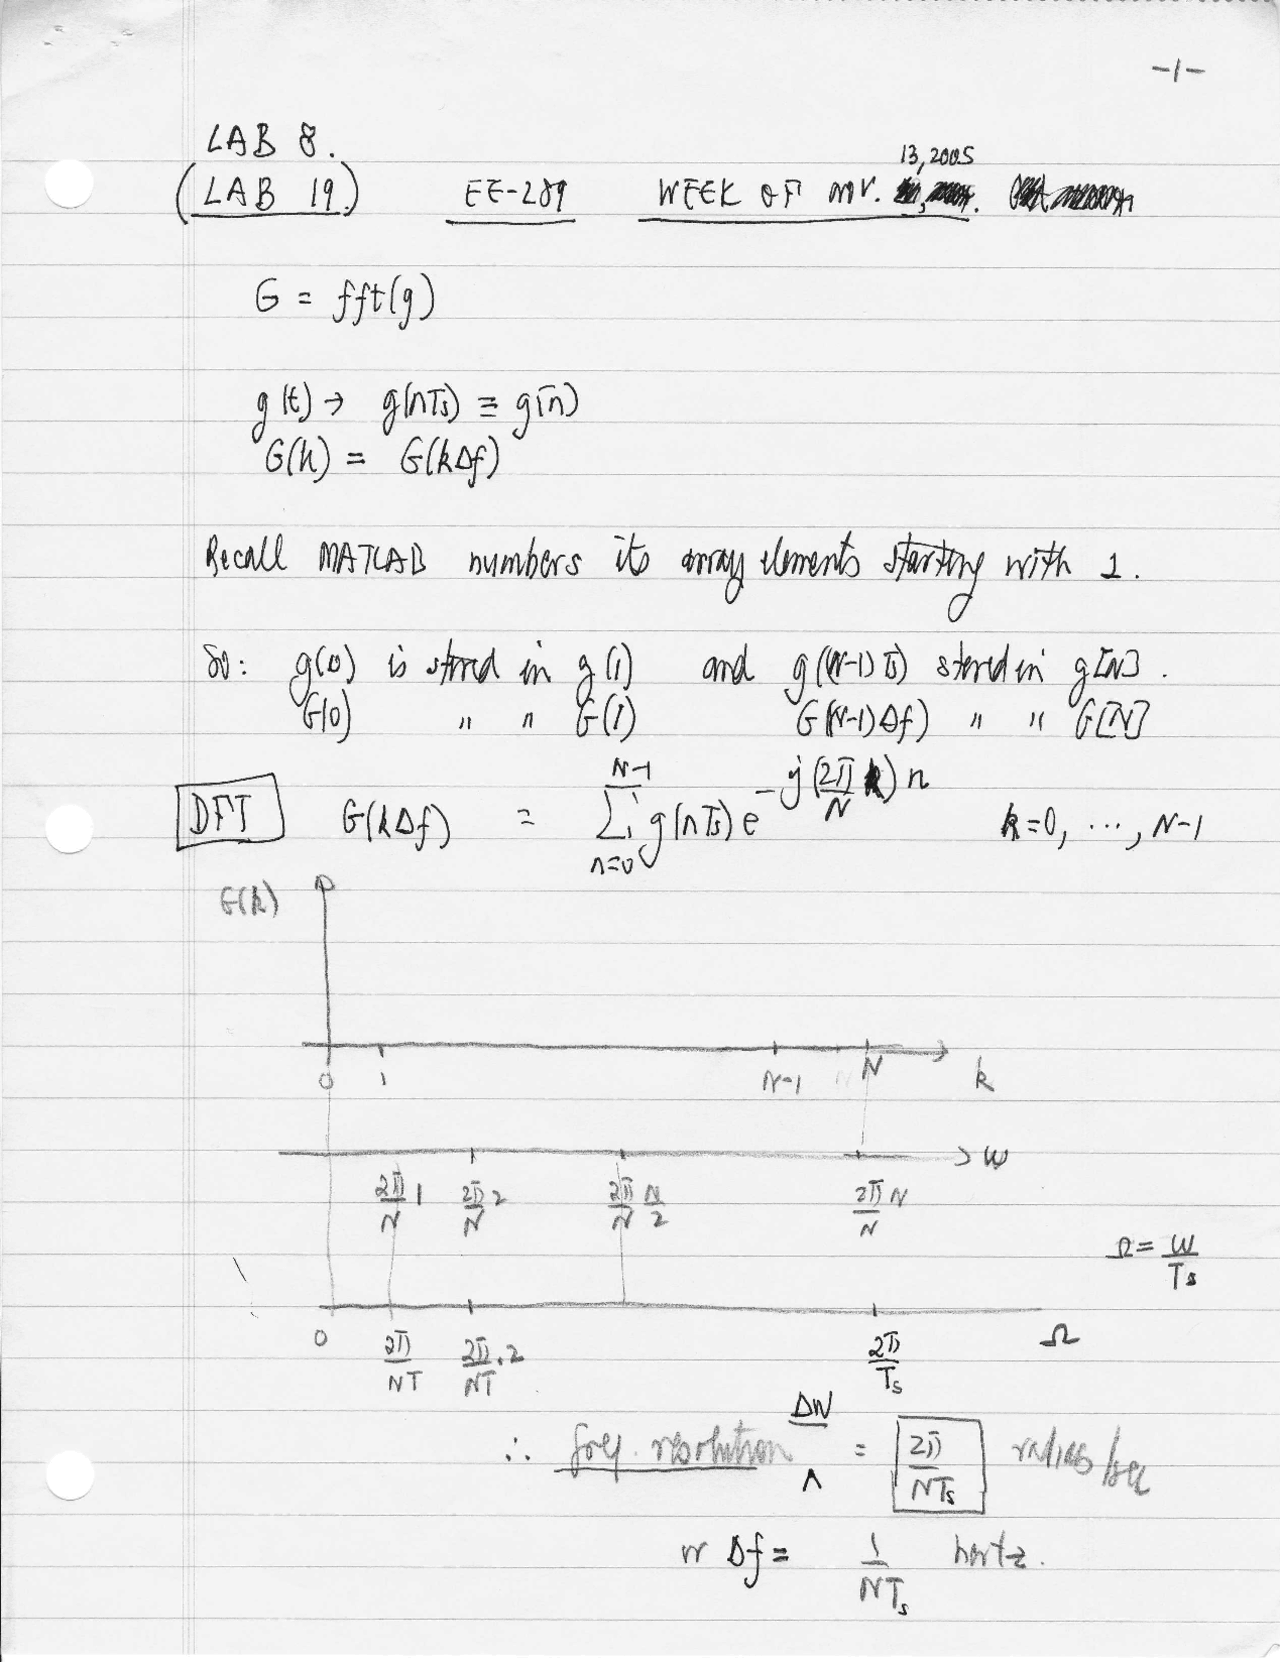 -1-
LAB 8.
13, 2005
(LAB 19.) EE-289 WEEK OF NOV.
G = fft(g)
g(t) → g(nTs) ≡ g(n)
G(k) = G(kΔf)
Recall MATLAB numbers its array elements starting with 1.
So: g(0) is stored in g(1) and g((N-1)Ts) stored in g[N].
G(0) " " G(1) G((N-1)Δf) " " G[N]
DFT G(kΔf) = ∑_{n=0}^{N-1} g(nTs) e^{-j(2π/N k)n} k=0, ..., N-1
G(k)
0 1 N-1 N k
2π/N 1 2π/N 2 2π/N N/2 2π/N N ω
Ω = ω/Ts
0 2π/NT 2π/NT . 2 2π/Ts Ω
∴ freq. resolution ΔW = 2π/NTs radians/sec
or Δf = 1/NTs hertz.